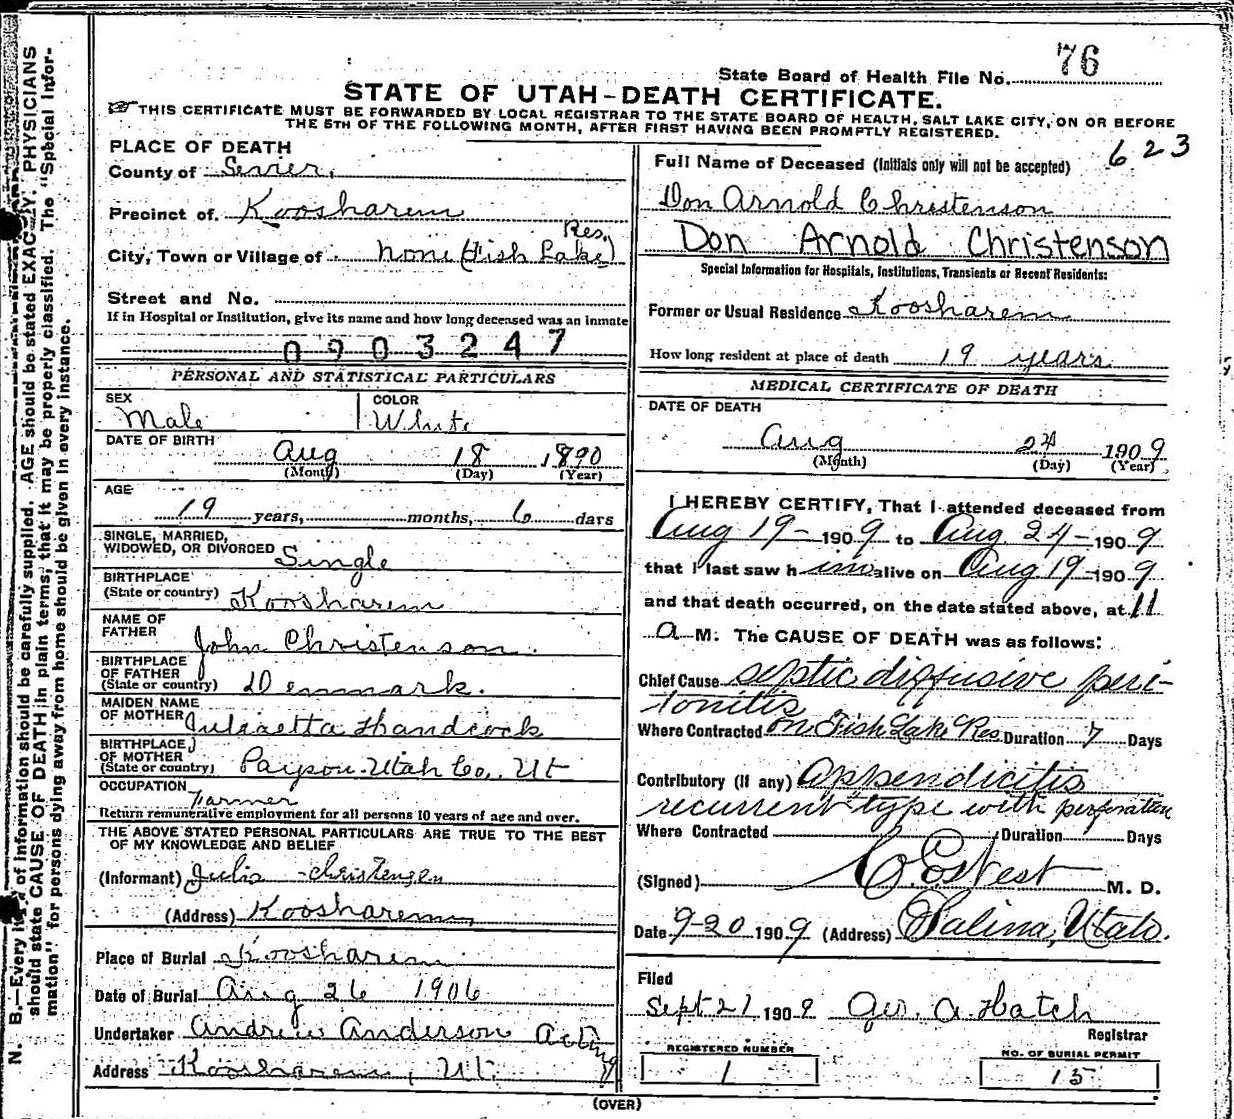 State Board of Health File No. 76
STATE OF UTAH-DEATH CERTIFICATE.
THIS CERTIFICATE MUST BE FORWARDED BY LOCAL REGISTRAR TO THE STATE BOARD OF HEALTH, SALT LAKE CITY, ON OR BEFORE
THE 5TH OF THE FOLLOWING MONTH, AFTER FIRST HAVING BEEN PROMPTLY REGISTERED.
623
PLACE OF DEATH
County of Sevier.
Precinct of. Koosharem
Res.
City, Town or Village of none (Fish Lake)
Street and No.
If in Hospital or Institution, give its name and how long deceased was an inmate
0903247
PERSONAL AND STATISTICAL PARTICULARS
SEX
Male
COLOR
White
DATE OF BIRTH
Aug 18 1890
(Month) (Day) (Year)
AGE
19 years, months, 6 days
SINGLE, MARRIED,
WIDOWED, OR DIVORCED Single
BIRTHPLACE
(State or country) Koosharem
NAME OF
FATHER John Christenson.
BIRTHPLACE
OF FATHER
(State or country) Denmark.
MAIDEN NAME
OF MOTHER Julizetta Handcock
BIRTHPLACE
OF MOTHER
(State or country) Payson. Utah Co., Ut
OCCUPATION
Farmer
Return remunerative employment for all persons 10 years of age and over.
THE ABOVE STATED PERSONAL PARTICULARS ARE TRUE TO THE BEST
OF MY KNOWLEDGE AND BELIEF
(Informant) Julia Christensen
(Address) Koosharem
Place of Burial Koosharem
Date of Burial Aug 26 1906
Undertaker Andrew Anderson Acting
Address Koosharem, Ut.
Full Name of Deceased (Initials only will not be accepted)
Don Arnold Christenson
Don Arnold Christenson
Special Information for Hospitals, Institutions, Transients or Recent Residents:
Former or Usual Residence Koosharem
How long resident at place of death 19 years
MEDICAL CERTIFICATE OF DEATH
DATE OF DEATH
Aug 24 1909
(Month) (Day) (Year)
I HEREBY CERTIFY, That I attended deceased from
Aug 19- 1909 to Aug. 24- 1909
that I last saw him alive on Aug 19-1909
and that death occurred, on the date stated above, at 11
A M. The CAUSE OF DEATH was as follows:
Chief Cause septic diffusive peri-
tonitis
Where Contracted on Fish Lake Res Duration 7 Days
Contributory (if any) Appendicitis
recurrent type with perforation
Where Contracted Duration Days
(Signed) West M. D.
Date 9-20 1909 (Address) Salina, Utah.
Filed
Sept 21 1909 Geo. A Hatch
Registrar
REGISTERED NUMBER
1
NO. OF BURIAL PERMIT
15
(OVER)
N. B.—Every of information should be carefully supplied. AGE should be stated EXACTLY. PHYSICIANS
should state CAUSE OF DEATH in plain terms, that it may be properly classified. The "Special Infor-
mation" for persons dying away from home should be given in every instance.